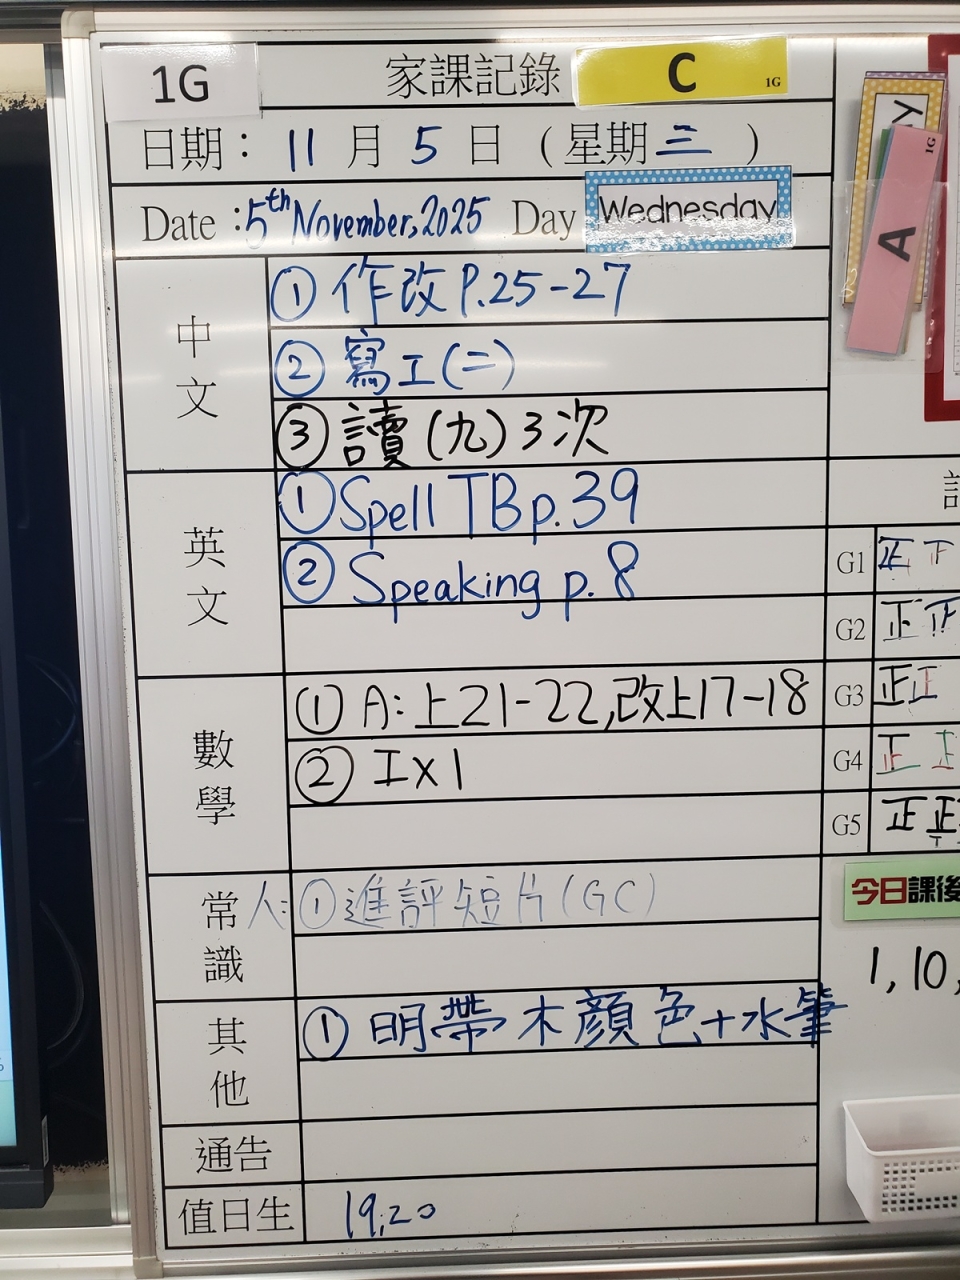 1G 家課記錄 C 1G
日期： 11 月 5 日 （星期 三 ）
Date : 5th November, 2025 Day Wednesday
中文
① 作改 P.25-27
② 寫工(二)
③ 讀(九)3次
英文
① Spell TB p.39
② Speaking p.8
數學
① A: 上21-22,改上17-18
② 工x1
常識
人: ① 進評短片(GC)
其他
① 明帶木顏色+水筆
通告
值日生 19,20
A 1G
G1 正
G2 正
G3 正
G4 正
G5 正
今日課後
1, 10,